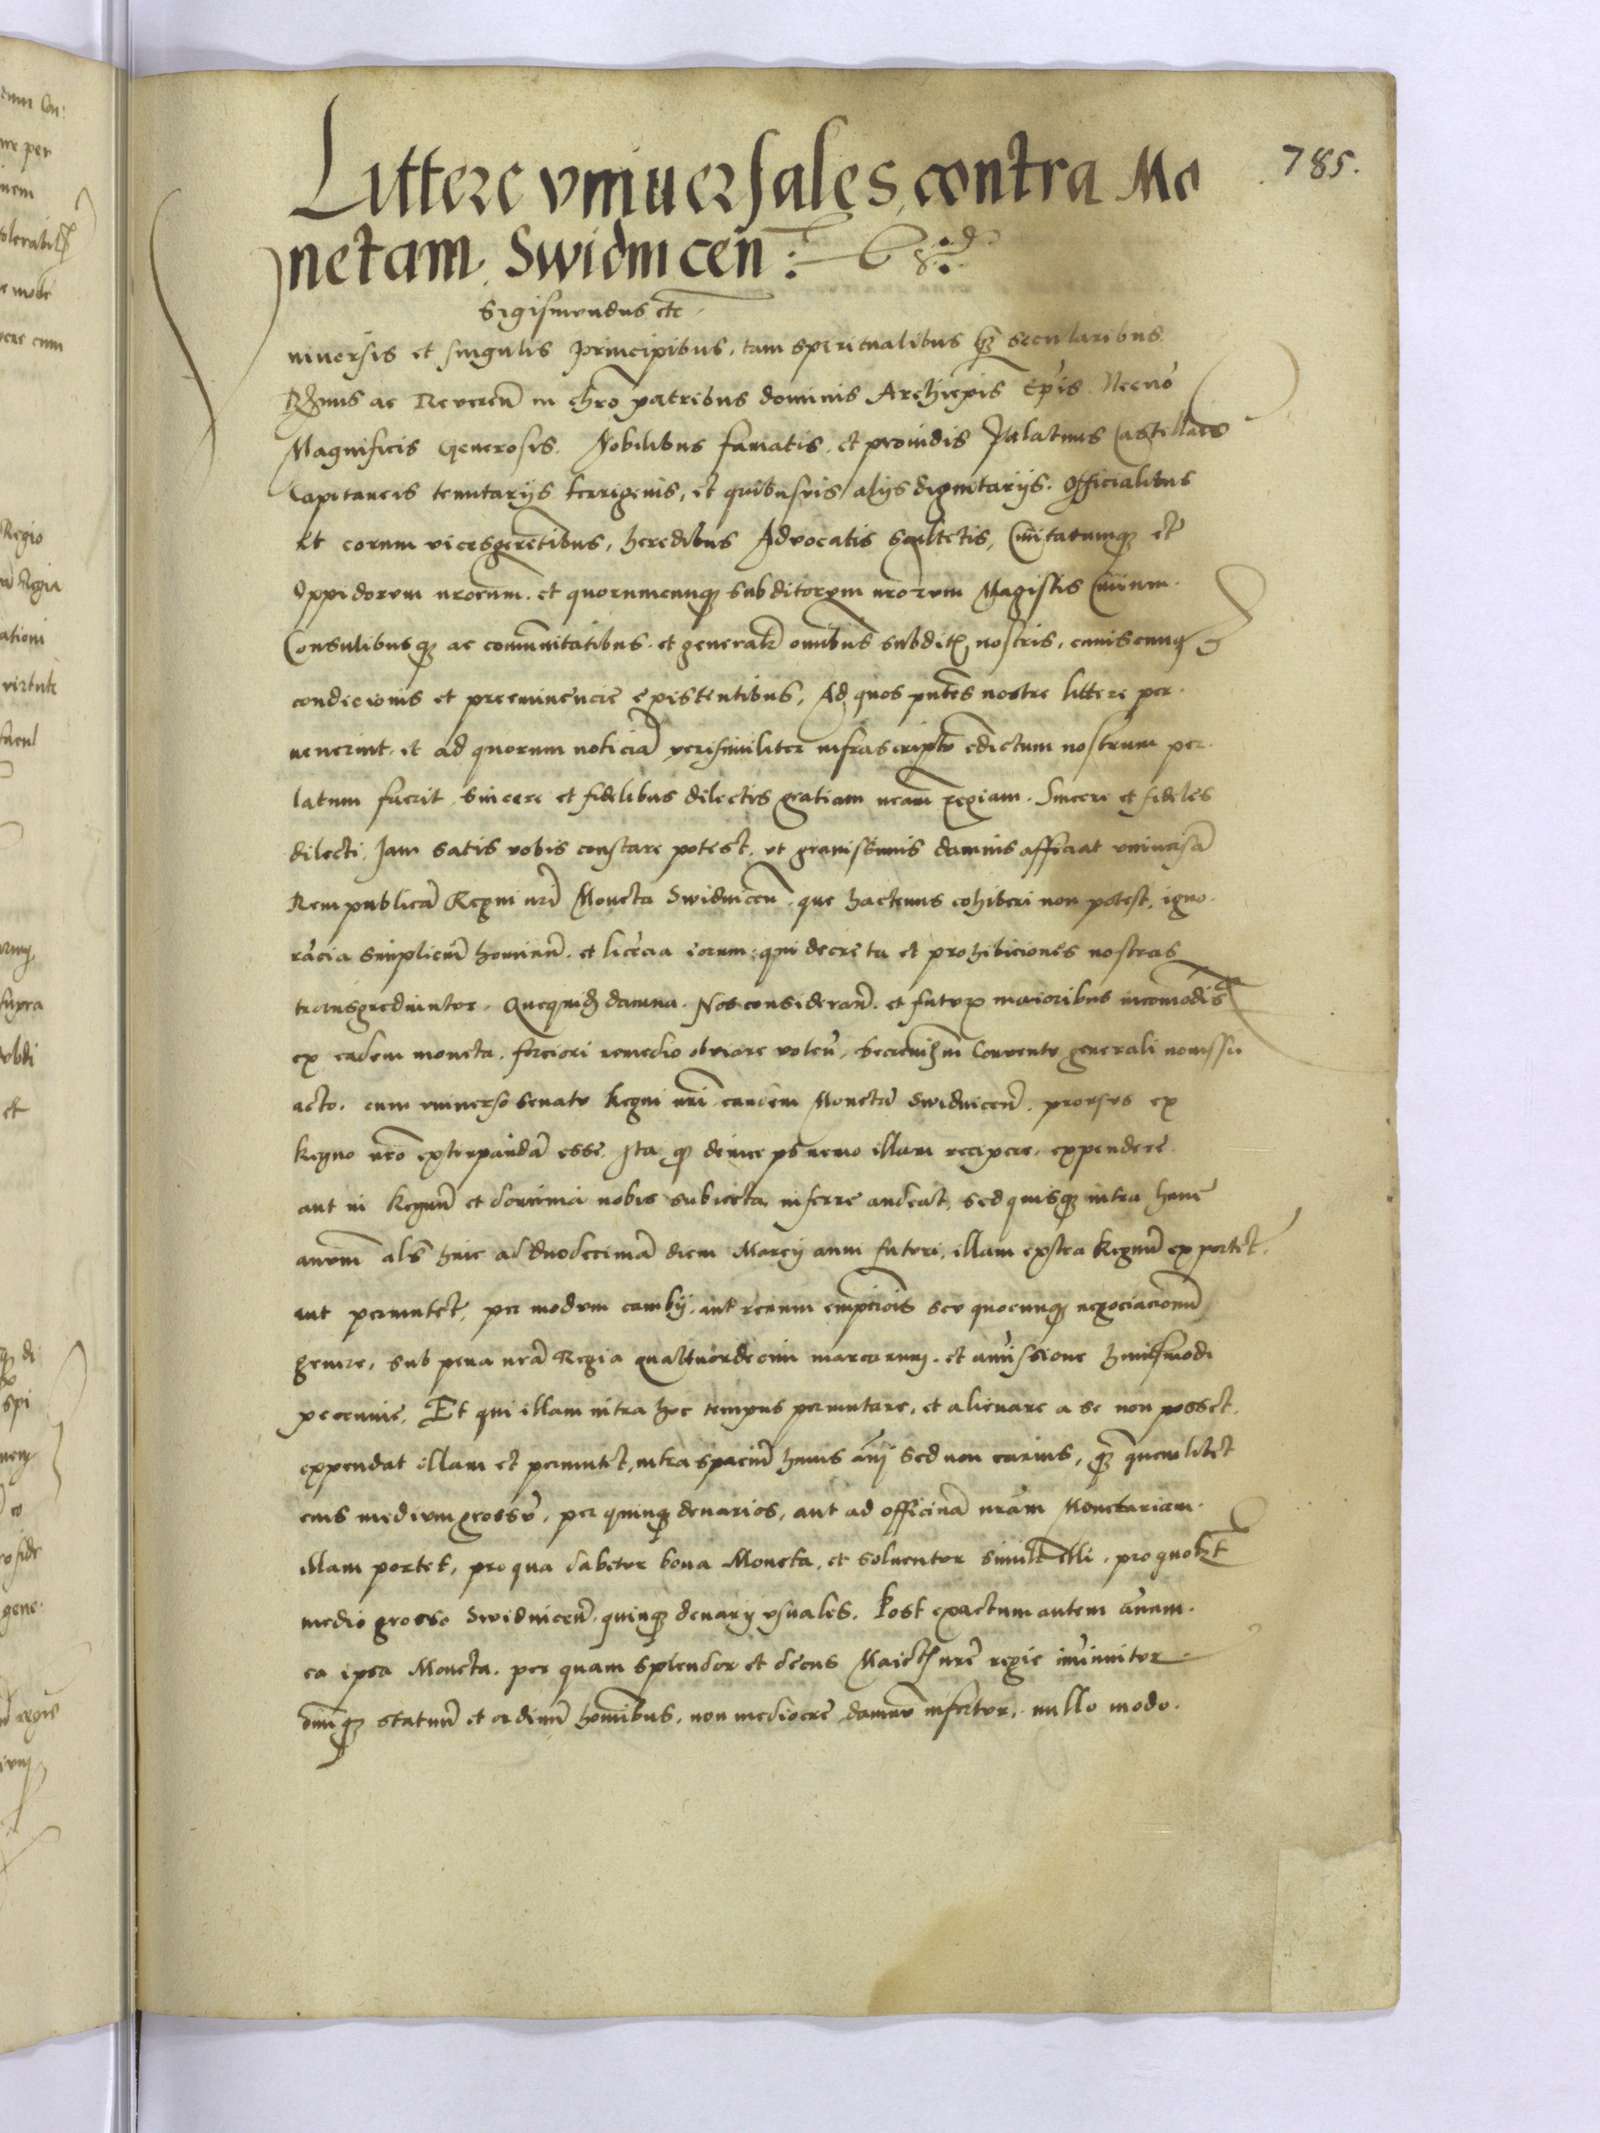 785.
Littere vniuersales contra Mo
netam Swidnicen̄
Sigismundus etc̄
niuersis et singulis principibus, tam spiritualibus q̄ȝ secularibus
Rm̄is ac Reueren̄ in chr̄o patribus dominis Archiep̄is Ep̄is Necnō
Magnificis Generosis. Nobilibus famatis. et prouidis Palatinis Castellan̄is
Capitaneis tenutarijs terrigenis, et quibusuis alijs dignitarijs. Officialibus
et eorum vicesgerētibus, heredibus Aduocatis scultetis, Ciuitatumqȝ et
Oppidorum nr̄orum. et quorumcunqȝ subditorum nr̄orum Magistris Ciuium.
Consulibusqȝ ac com̄unitatibus. et general̄r om̄ibus subditis nostris, cuiuscunqȝ
condicionis et preeminēcie existentibus, Ad quos pn̄tes nostre littere per
uenerint. et ad quorum noticiā verisimiliter infrascriptū edictum nostrum per
latum fuerit, sincere et fidelibus dilectis gratiam nr̄am regiam. Sincere et fideles
dilecti. Jam satis vobis constare potest. vt grauissimis damnis afficiat vniuersā
Rempublicā Regni nr̄i Moneta Swidnicen̄. que hactenus cohiberi non potest, igno
rācia simpliciū hominū. et licēcia eorum: qui decreta et prohibiciones nostras
transgrediuntur. Quequidē damna. Nos consideran̄. et futuris maioribus incōmodis
ex eadem moneta. forciori remedio obuiare volen̄. decreuimꝰ in Conuentu generali nouissīe
acto. cum vniuerso senatu Regni nr̄i eandem Monetā Swidnicen̄. prorsus ex
Regno nr̄o extirpandā esse. Ita qȝ deinceps nemo illam recipere, expendere
aut in Regnū et dominia nobis subiecta, inferre audeat, sed quisqȝ intra hunc
annum al̄s hinc ad duodecimā diem Marcij anni futuri, illam extra Regnū exportet.
aut permutet, per modum cambij. aut rerum empcionis seu quocunqȝ negociacionū
genere, sub pena nr̄a Regia quattuordecim marcarum. et amissione huiusmodi
pecunie. Et qui illam intra hoc tempus permutare, et alienare a se non posset.
expendat illam et permutet, intra spaciū huius an̄j sed non carius, qȝ quemlibet
eius medium grossū, per quinqȝ denarios, aut ad officinā nr̄am Monetariam.
illam portet, pro qua dabitur bona Moneta, et soluentur similiter illi. pro quol̄t
medio grosso Swidnicen̄. quinqȝ denarij vsuales. Post exactum autem annum.
ea ipsa Moneta. per quam splendor et decus Maiestatis nr̄e regie imminuitur
om̄iqȝ statuū et ordinū hominibus, non mediocre damnū infertur, nullo modo.